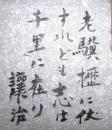 老驥櫪に伏
すれども志は
千里に在り
讓治